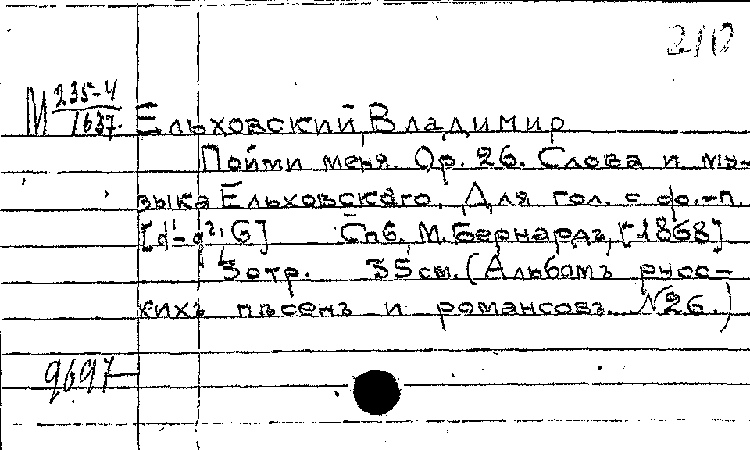 210
М 235-4/1637. Ельховский, Владимир
Пойми меня. Op. 26. Слова и му-
зыка Ельховскаго. Для гол. с ф.-п.
[d¹-g², G] Спб., М. Бернардъ, [1868]
5 стр. 35 см. (Альбомъ русс-
кихъ пѣсенъ и романсовъ. №26.)
9697